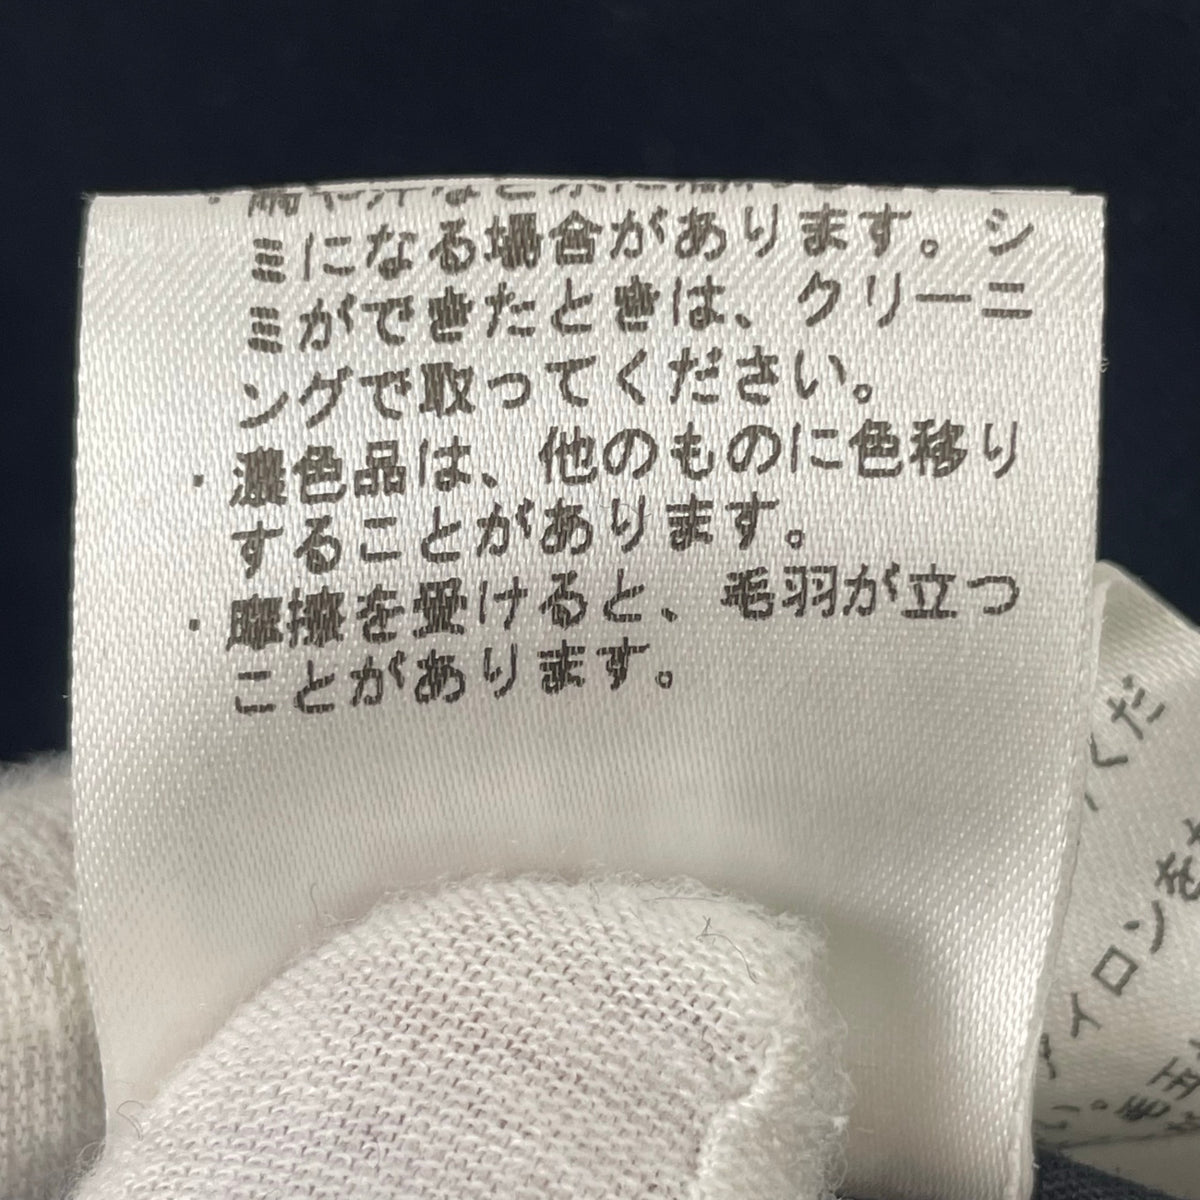 ミになる場合があります。シ
ミができたときは、クリーニ
ングで取ってください。
・濃色品は、他のものに色移り
することがあります。
・摩擦を受けると、毛羽が立つ
ことがあります。
くだ
アイロンを
い。毛